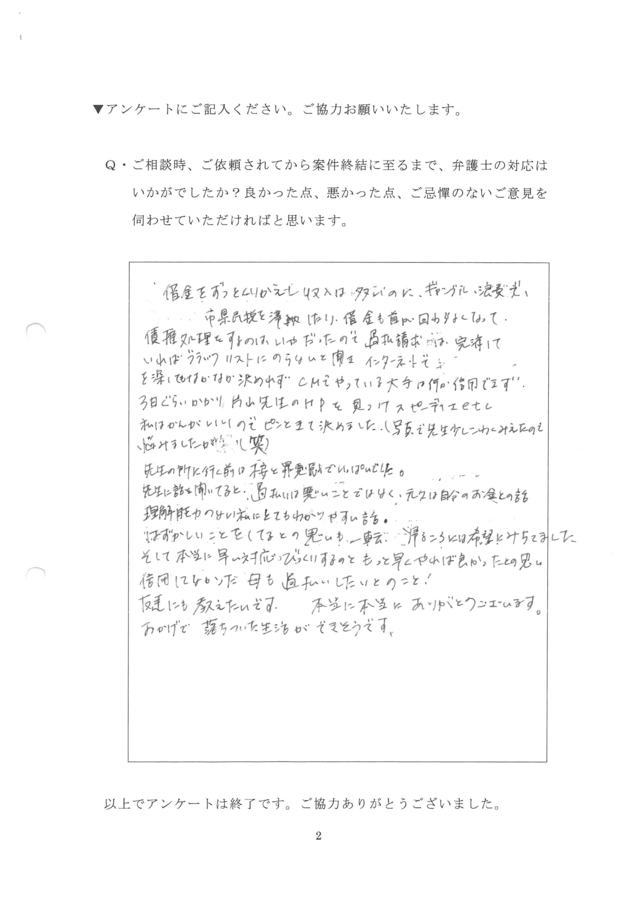 ▼アンケートにご記入ください。ご協力お願いいたします。
Q・ご相談時、ご依頼されてから案件終結に至るまで、弁護士の対応は
いかがでしたか？良かった点、悪かった点、ご忌憚のないご意見を
伺わせていただければと思います。
借金をずっとくりかえし収入は多いのに、ギャンブル、浪費で、
市県民税を滞納したり、借金も首が回わらなくなって
債務処理をするのはいやだったので過払請求は、完済して
いればブラックリストにのらないと聞き インターネットで
を探してもなかなか決められず CMでやっている大手は何か信用できず、
3日ぐらいかかり 片山先生のHPを見つけスピーディetc
私はかんがいいのでピンときて決めました。(写真で先生少しこわくみえたので
悩みましたが (笑)
先生の所に行く前は 罪悪感でいっぱいでした。
先生に話を聞いてると、過払いは悪いことではなく、元々は自分のお金との話
理解能力のない私にとてもわかりやすい話。
はずかしいことをしてるとの思いも一転 帰るころには希望にみちてました
そして本当に早い対応でびっくりするのと もっと早くやれば良かったとの思い
信用してなかった母も過払いしたいとのこと！
友達にも教えたいです。 本当に本当に ありがとうございます。
おかげで 落ちついた生活ができそうです。
以上でアンケートは終了です。ご協力ありがとうございました。
2